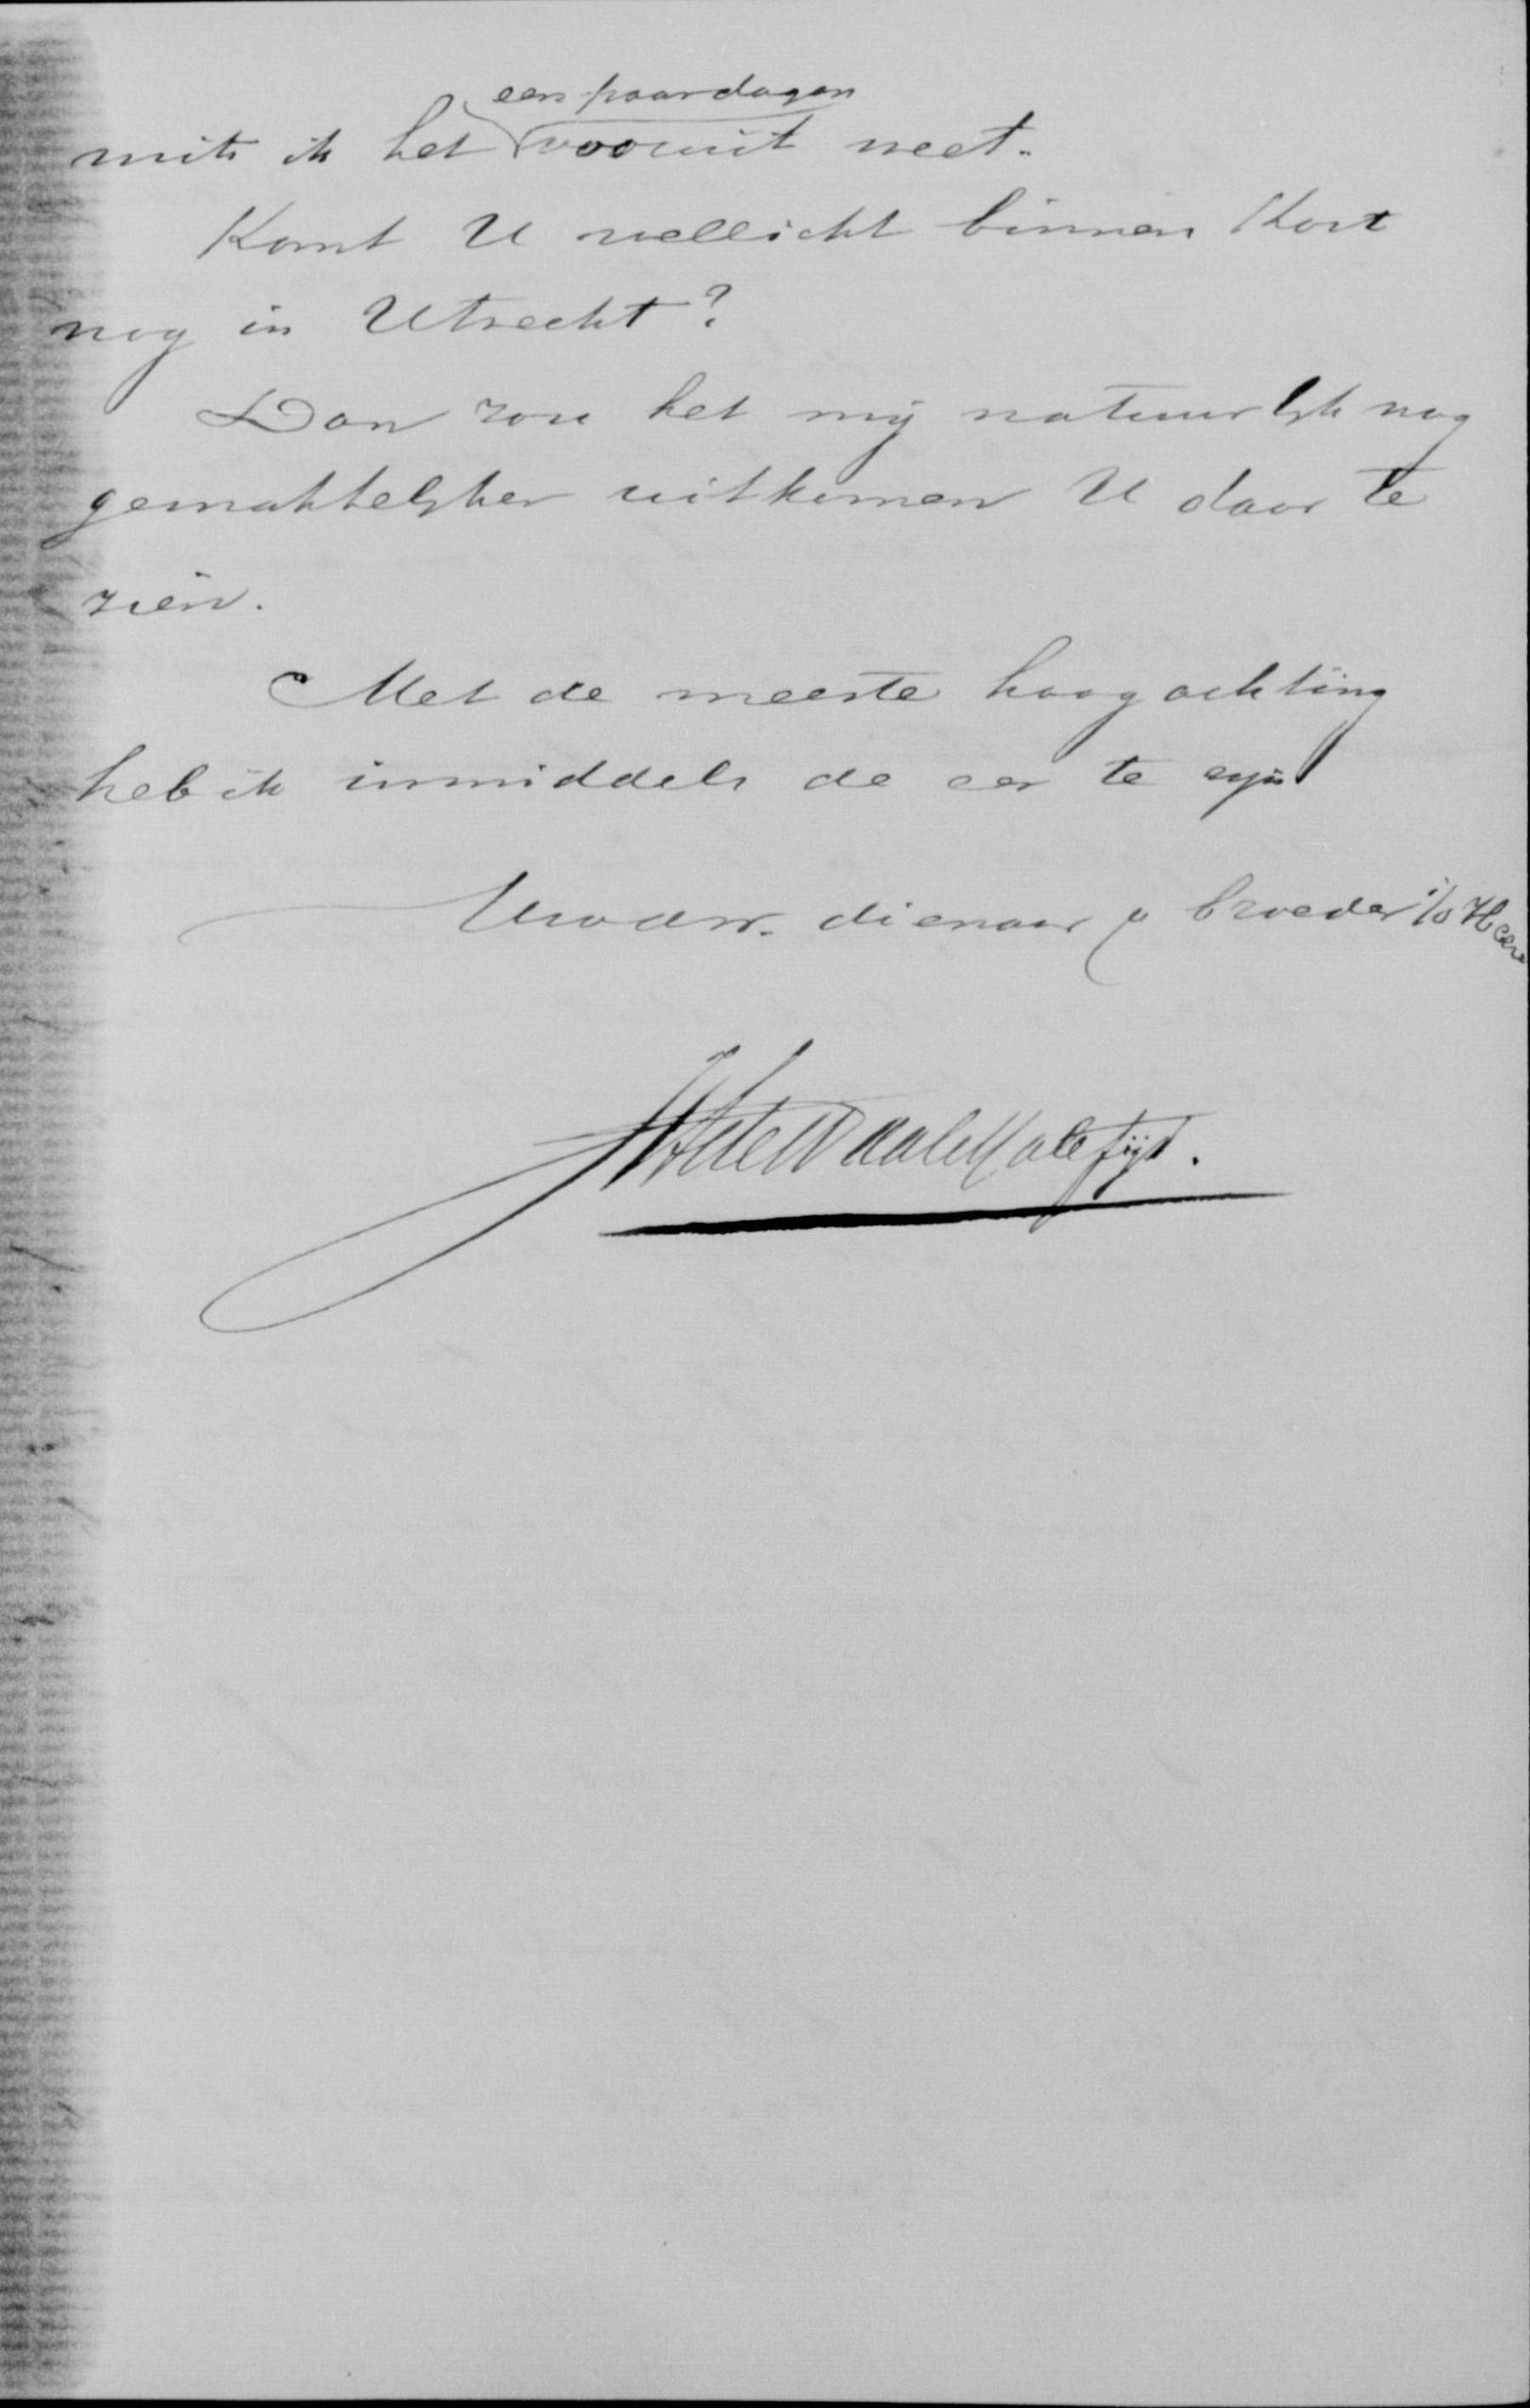 een paar dagen
mits ik het vooruit weet.
Komt U wellicht binnen kort
nog in Utrecht?
Dan zou het mij natuurlijk nog
gemakkelijker uitkomen U daar te
zien.
Met de meeste hoogachting
heb ik inmiddels de eer te zijn
Uwdw. dienaar & broeder i/d Heere
JHdeWaalMalefijt.